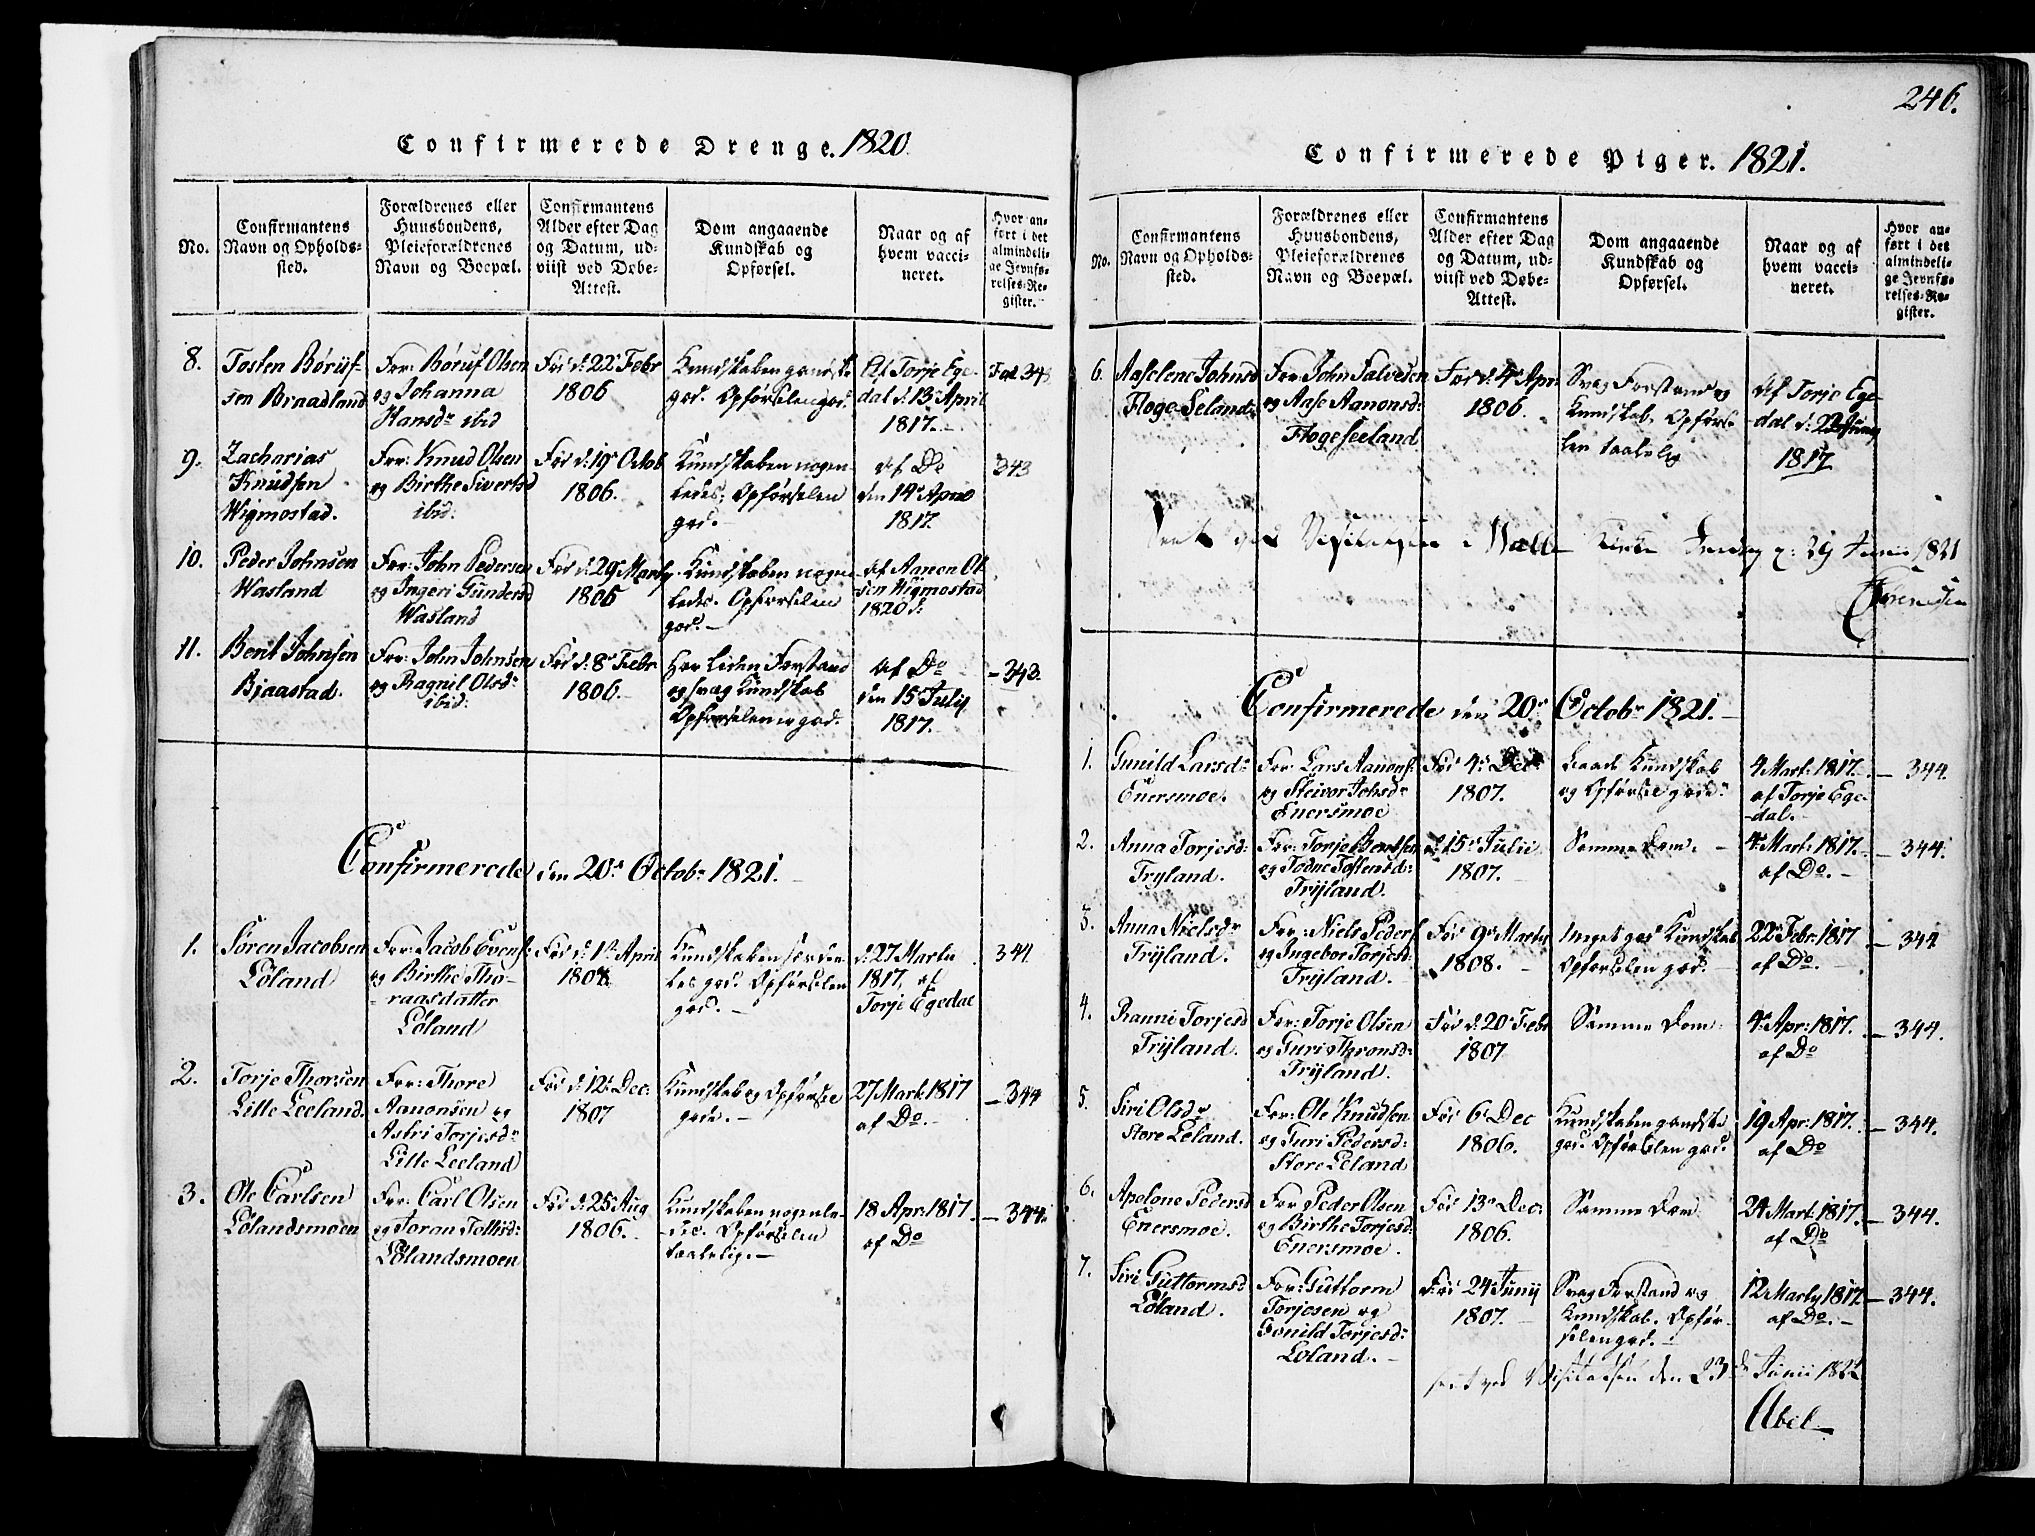 Confirmerede Drenge. 1820.
No.
Confirmantens
Navn og Opholds-
sted.
Forældrenes eller
Huusbondens,
Pleieforældrenes
Navn og Boepæl.
Confirmantens
Alder efter Dag
og Datum, ud-
viist ved Døbe-
Attest.
Dom angaaende
Kundskab og
Opførsel.
Naar og af
hvem vacci-
neret.
Hvor an-
ført i det
almindeli-
ge Jevnfø-
relses-Re-
gister.
8.
Tosten Børuf-
sen Braadland
For: Børuf Olsen
og Johanna
Hansdr ibid
Fød d: 22 Febr
1806
Kundskaben gandske
god. Opførselen god.
Af Torje Ege-
dal d: 13 April
1817.
9.
Zacharias
Knudsen
Wigmostad.
For: Knud Olsen
og Birthe Sivertsd
ibid.
Fød d: 19 Octob
1806.
Kundskaben nogen-
ledes; Opførselen
god.
Af Do
den 14 April
1817.
343
10.
Peder Johnsen
Wasland
For: John Pedersen
og Ingeri Gundersd
Wasland
Fød d: 29 Marty
1806
Kundskaben nogen-
ledes. Opførselen
god.
Af Aanon Ol-
sen Wigmostad
1820
11.
Berit Johnsen
Bjaastad.
For: John Johnsen
og Ragnil Olsdr
ibid:
Fød d: 8 Febr
1806.
Har liden Forstand
og svag Kundskab
Opførselen er god.
Af Do
den 15 July
1817.
343.
Confirmerede den 20 Octobr 1821.
1.
Søren Jacobsen
Løland
For: Jacob Evens:
og Birthe Tho-
raasdatter
Løland
Fød d: 1 April
1808
Kundskaben særde-
les god. Opførselen
god.
d: 27 Marty
1817, af
Torje Egedal
344
2.
Torje Thorsen
Lille Leeland.
For: Thore
Aanonsen og
Astri Torjesdr
Lille Leeland
Fød d: 12 Dec:
1807
Kundskab og Opførsel
gode.
27 Mart. 1817
af Do.
344
3.
Ole Carlsen
Lølandsmoen
For: Carl Olsen
og Joran Tollisd:
Lølandsmoen
Fød d: 25 Aug
1806.
Kundskaben nogenle-
des. Opførselen
taalelig.
18 Apr: 1817.
af Do
344.
246.
Confirmerede Piger. 1821.
No.
Confirmantens
Navn og Opholds-
sted.
Forældrenes eller
Huusbondens,
Pleieforældrenes
Navn og Boepæl.
Confirmantens
Alder efter Dag
og Datum, ud-
viist ved Døbe-
Attest.
Dom angaaende
Kundskab og
Opførsel.
Naar og af
hvem vacci-
neret.
Hvor an-
ført i det
almindeli-
ge Jevnfø-
relses-Re-
gister.
6.
Aaselene Johnsd
Floge Seland
For John Salvesen
og Aase Aanonsd:
Flogeseeland
Fød d. 4 Apr
1806.
Svag Forstand og
Kundskab, Opførse-
len taalelig
Af Torje Ege-
dal d: 22 Juny
1817
Seet ved Visitatsen i Kirke Fredag d: 29 Junii 1821
Confirmerede den 20 Octobr 1821.
1.
Gunild Larsdr
Enersmoe.
For: Lars Aanons:
og Steivor Johsdr
Enersmoe
Fød 4 Dec
1807.
Baade Kundskab
og Opførsel gode
4 Mart. 1817.
af Torje Ege-
dal.
344.
2.
Anna Torjesd:
Tryland.
For: Torje Bentsen
og Todne Tostensd:
Tryland.
d 15 Julii
1807.
Samme Dom.
4 Mart: 1817.
af Do.
344.
3.
Anna Nielsdr
Tryland.
For: Niels Peders:
og Ingebor Torjesd:
Tryland.
Fød 9 Marty
1808.
Meget god Kundskab
Opførselen god.
22 Febr: 1817
af Do.
344
4.
Ranni Torjesd
Tryland.
For: Torje Olsen
og Guri Thronsd:
Tryland.
Fød d: 20 Febr
1807
Samme Dom
4 Apr: 1817.
af Do
344.
5.
Siri Olsdr
Store Leland.
For: Ole Knudsen
og Guri Pedersd:
Store Leland
Fød 6 Dec
1806.
Kundskaben gandske
god. Opførselen god.
19 Apr: 1817.
af Do
344.
6.
Apelone Pedersd
Enersmoe.
For Peder Olsen
og Birthe Torjesd:
Enersmoe.
Fød 13 Dec:
1806.
Samme Dom
24 Mart. 1817.
af Do
344.
7.
Siri Guttormsd
Løland.
For: Guttorm
Torjesen og
Gonild Torjesd:
Løland.
Fød 24 Juny
1807.
Svag Forstand og
Kundskab. Opfør-
selen god.
12 Marty 1817
af Do.
344.
seet ved Visitatsen den 23de Junii 1822
Abel